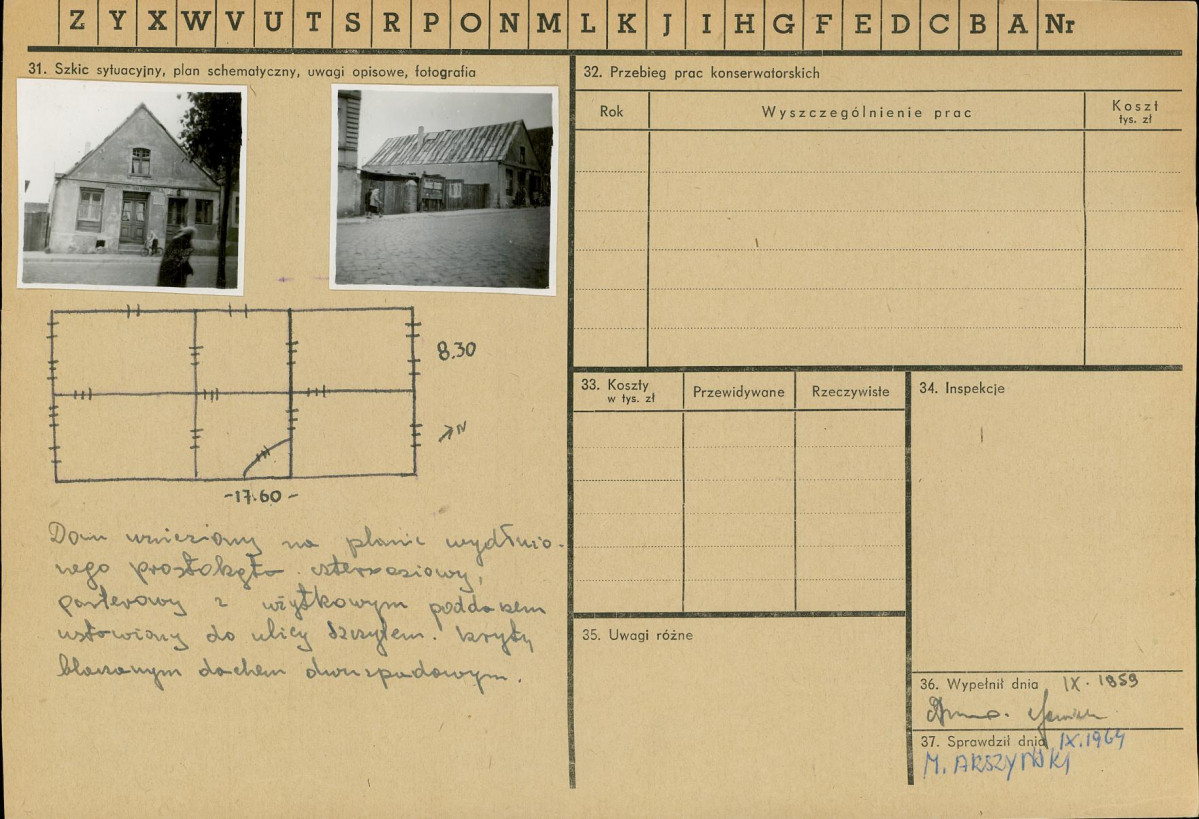 Z Y X W V U T S R P O N M L K J I H G F E D C B A Nr
31. Szkic sytuacyjny, plan schematyczny, uwagi opisowe, fotografia
8.30
N
-17.60-
Dom wzniesiony na planie wydłużo-
nego prostokąta czteroosiowy,
parterowy z użytkowym poddaszem
ustawiony do ulicy szczytem. Kryty
blaszanym dachem dwuspadowym.
32. Przebieg prac konserwatorskich
Rok Wyszczególnienie prac Koszt
tys. zł
33. Koszty
w tys. zł
Przewidywane Rzeczywiste
34. Inspekcje
35. Uwagi różne
36. Wypełnił dnia IX. 1959
37. Sprawdził dnia IX.1964
M. ARSZYŃSKI